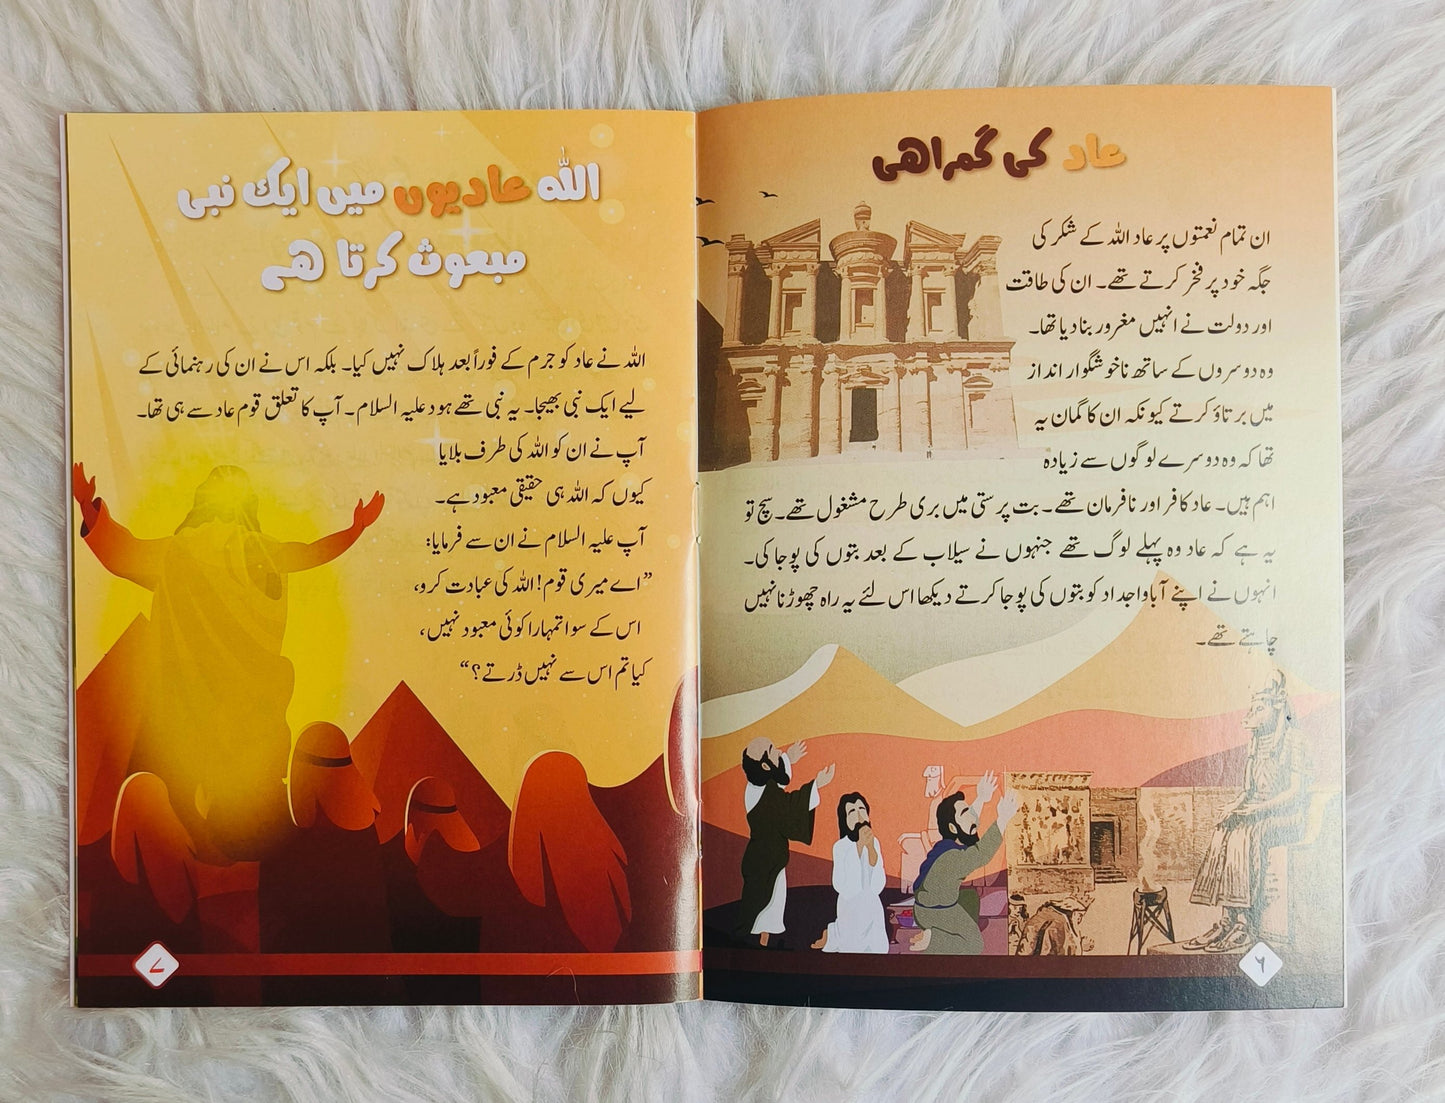 عاد کی گمراہی
ان تمام نعمتوں پر عاد اللہ کے شکر کی
جگہ خود پر فخر کرتے تھے۔ ان کی طاقت
اور دولت نے انہیں مغرور بنا دیا تھا۔
وہ دوسروں کے ساتھ ناخوشگوار انداز
میں برتاؤ کرتے کیونکہ ان کا گمان یہ
تھا کہ وہ دوسرے لوگوں سے زیادہ
اہم ہیں۔ عاد کافر اور نافرمان تھے۔ بت پرستی میں بری طرح مشغول تھے۔ سچ تو
یہ ہے کہ عاد وہ پہلے لوگ تھے جنہوں نے سیلاب کے بعد بتوں کی پوجا کی۔
انہوں نے اپنے آباواجداد کو بتوں کی پوجا کرتے دیکھا اس لئے یہ راہ چھوڑنا نہیں
چاہتے تھے۔
۶
اللہ عادیوں میں ایک نبی
مبعوث کرتا ہے
اللہ نے عاد کو جرم کے فوراً بعد ہلاک نہیں کیا۔ بلکہ اس نے ان کی رہنمائی کے
لیے ایک نبی بھیجا۔ یہ نبی تھے ہود علیہ السلام۔ آپ کا تعلق قوم عاد سے ہی تھا۔
آپ نے ان کو اللہ کی طرف بلایا
کیوں کہ اللہ ہی حقیقی معبود ہے۔
آپ علیہ السلام نے ان سے فرمایا:
”اے میری قوم! اللہ کی عبادت کرو،
اس کے سوا تمہارا کوئی معبود نہیں،
کیا تم اس سے نہیں ڈرتے؟“
۷